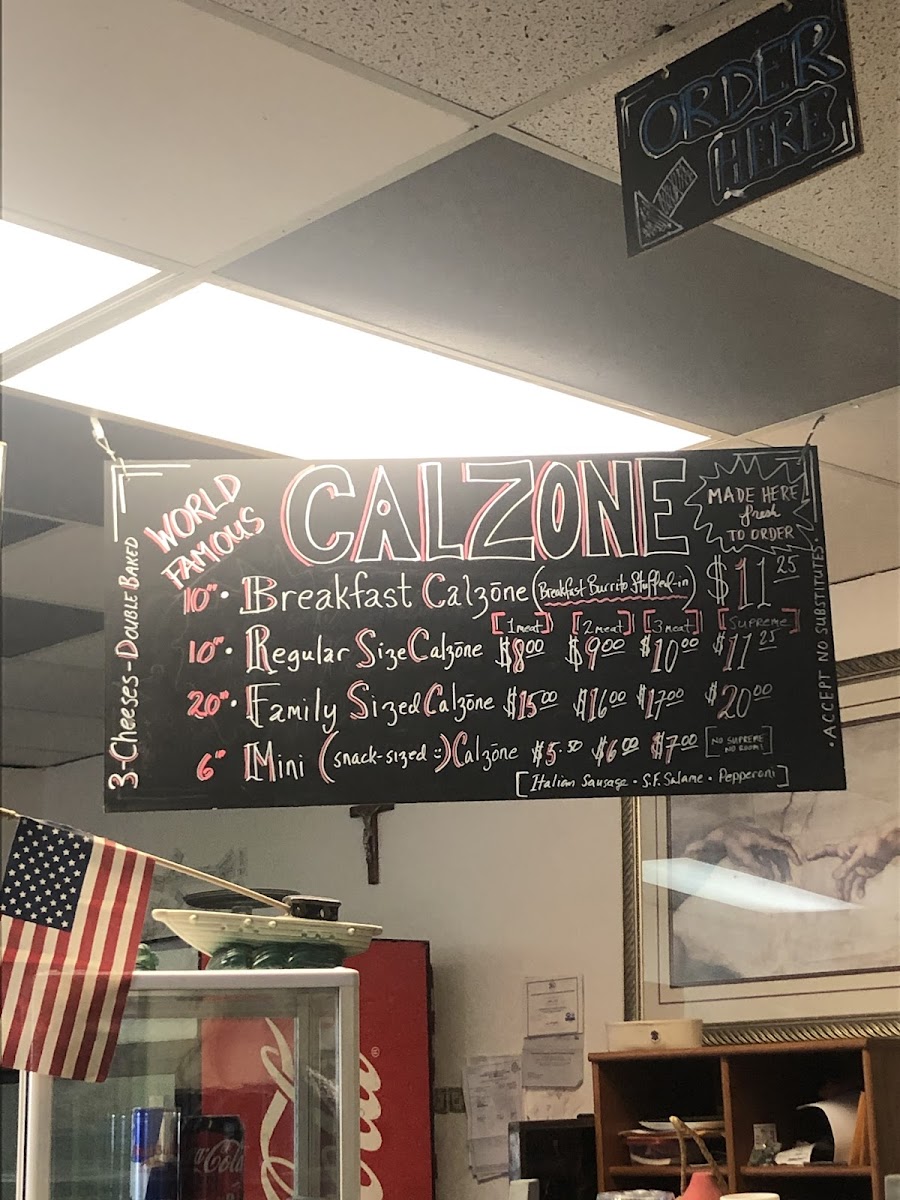 ORDER
HERE
WORLD
FAMOUS
CALZONE
MADE HERE
fresh
TO ORDER
3-Cheeses-Double Baked
10"• Breakfast Calzōne (Breakfast Burrito Stuffed-in) $11 25
[1 meat] [2 meat] [3 meat] [Supreme]
10"• Regular Size Calzōne $8 00 $9 00 $10 00 $11 25
20"• Family Sized Calzōne $15 00 $16 00 $17 00 $20 00
6" Mini (snack-sized :) Calzōne $5.50 $6 00 $7 00 NO SUPREME
NO ROOM!
[Italian Sausage • S.F. Salame • Pepperoni]
•ACCEPT NO SUBSTITUTES•
Coca-Cola